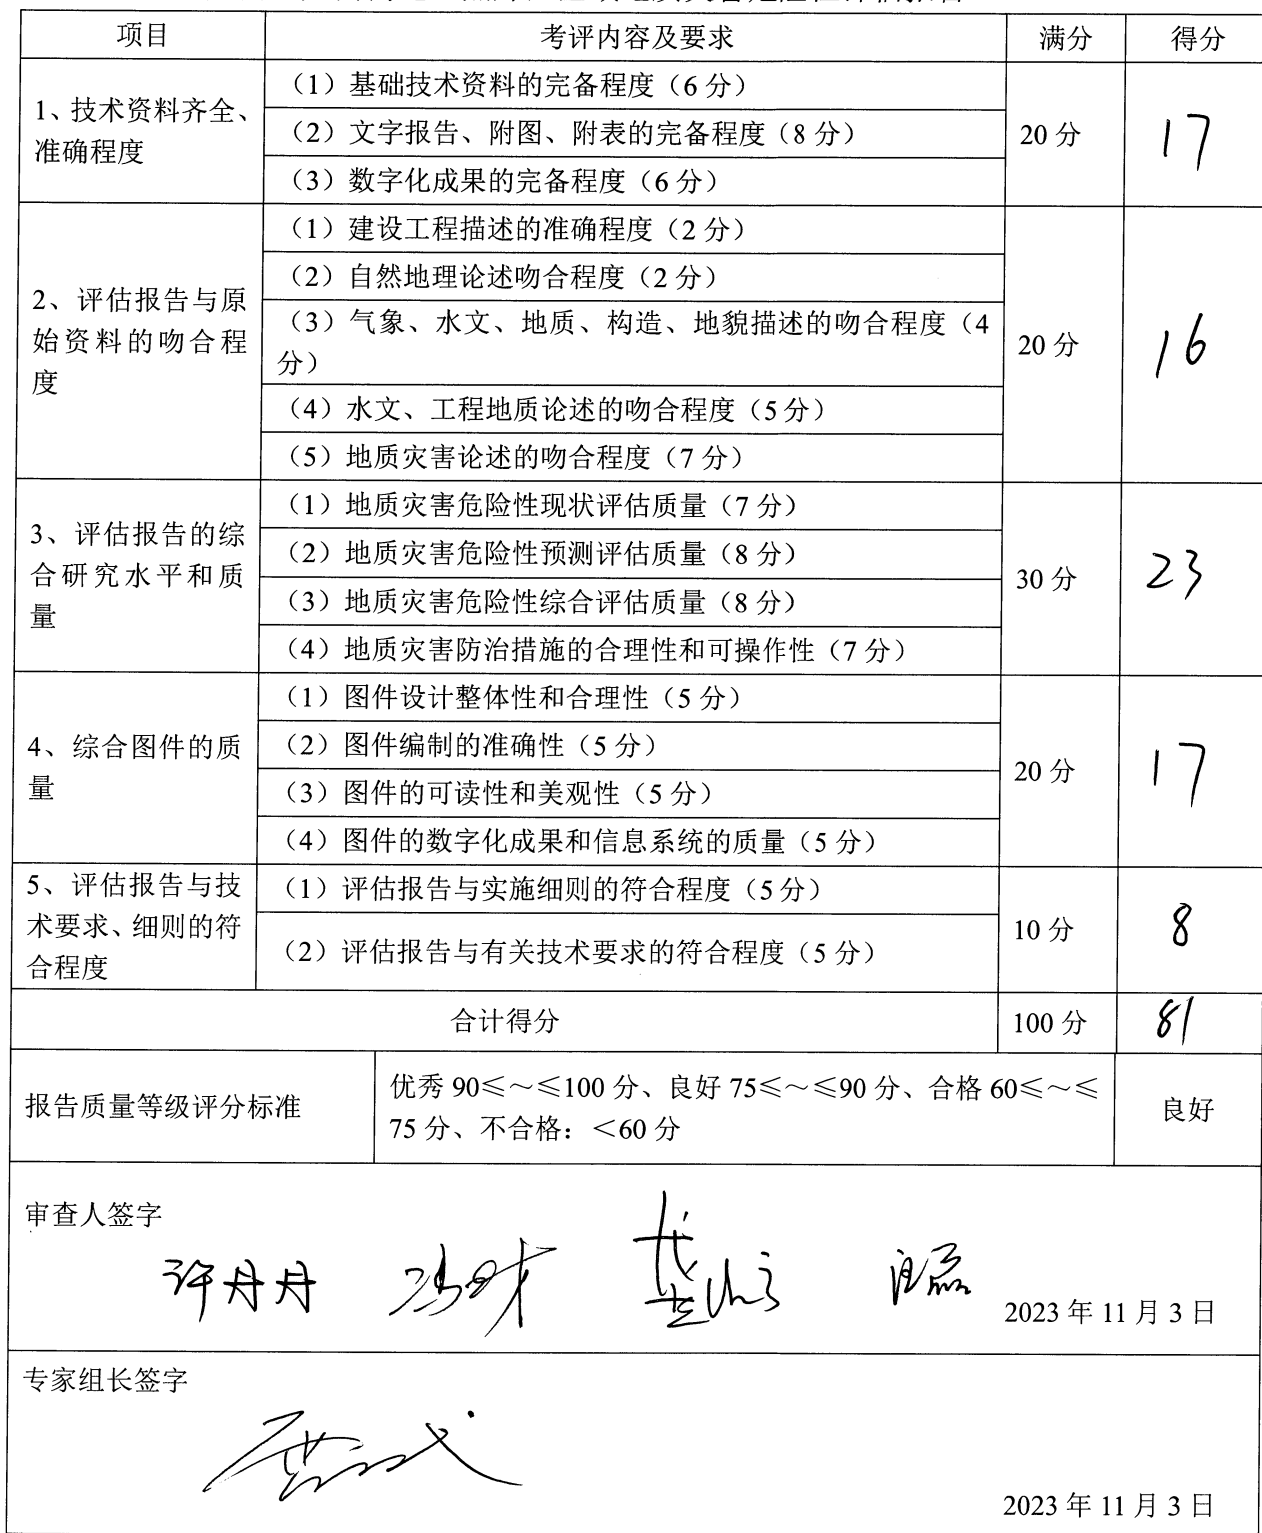 项目 考评内容及要求 满分 得分
1、技术资料齐全、
准确程度
（1）基础技术资料的完备程度（6 分）
（2）文字报告、附图、附表的完备程度（8 分）
（3）数字化成果的完备程度（6 分）
20 分
17
2、评估报告与原
始资料的吻合程
度
（1）建设工程描述的准确程度（2 分）
（2）自然地理论述吻合程度（2 分）
（3）气象、水文、地质、构造、地貌描述的吻合程度（4
分）
（4）水文、工程地质论述的吻合程度（5 分）
（5）地质灾害论述的吻合程度（7 分）
20 分
16
3、评估报告的综
合研究水平和质
量
（1）地质灾害危险性现状评估质量（7 分）
（2）地质灾害危险性预测评估质量（8 分）
（3）地质灾害危险性综合评估质量（8 分）
（4）地质灾害防治措施的合理性和可操作性（7 分）
30 分
23
4、综合图件的质
量
（1）图件设计整体性和合理性（5 分）
（2）图件编制的准确性（5 分）
（3）图件的可读性和美观性（5 分）
（4）图件的数字化成果和信息系统的质量（5 分）
20 分
17
5、评估报告与技
术要求、细则的符
合程度
（1）评估报告与实施细则的符合程度（5 分）
（2）评估报告与有关技术要求的符合程度（5 分）
10 分
8
合计得分 100 分 81
报告质量等级评分标准
优秀 90≤～≤100 分、良好 75≤～≤90 分、合格 60≤～≤
75 分、不合格：＜60 分
良好
审查人签字
许丹丹
2023 年 11 月 3 日
专家组长签字
2023 年 11 月 3 日